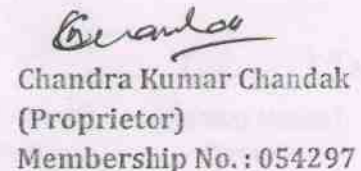 Chandra Kumar Chandak
(Proprietor)
Membership No. : 054297